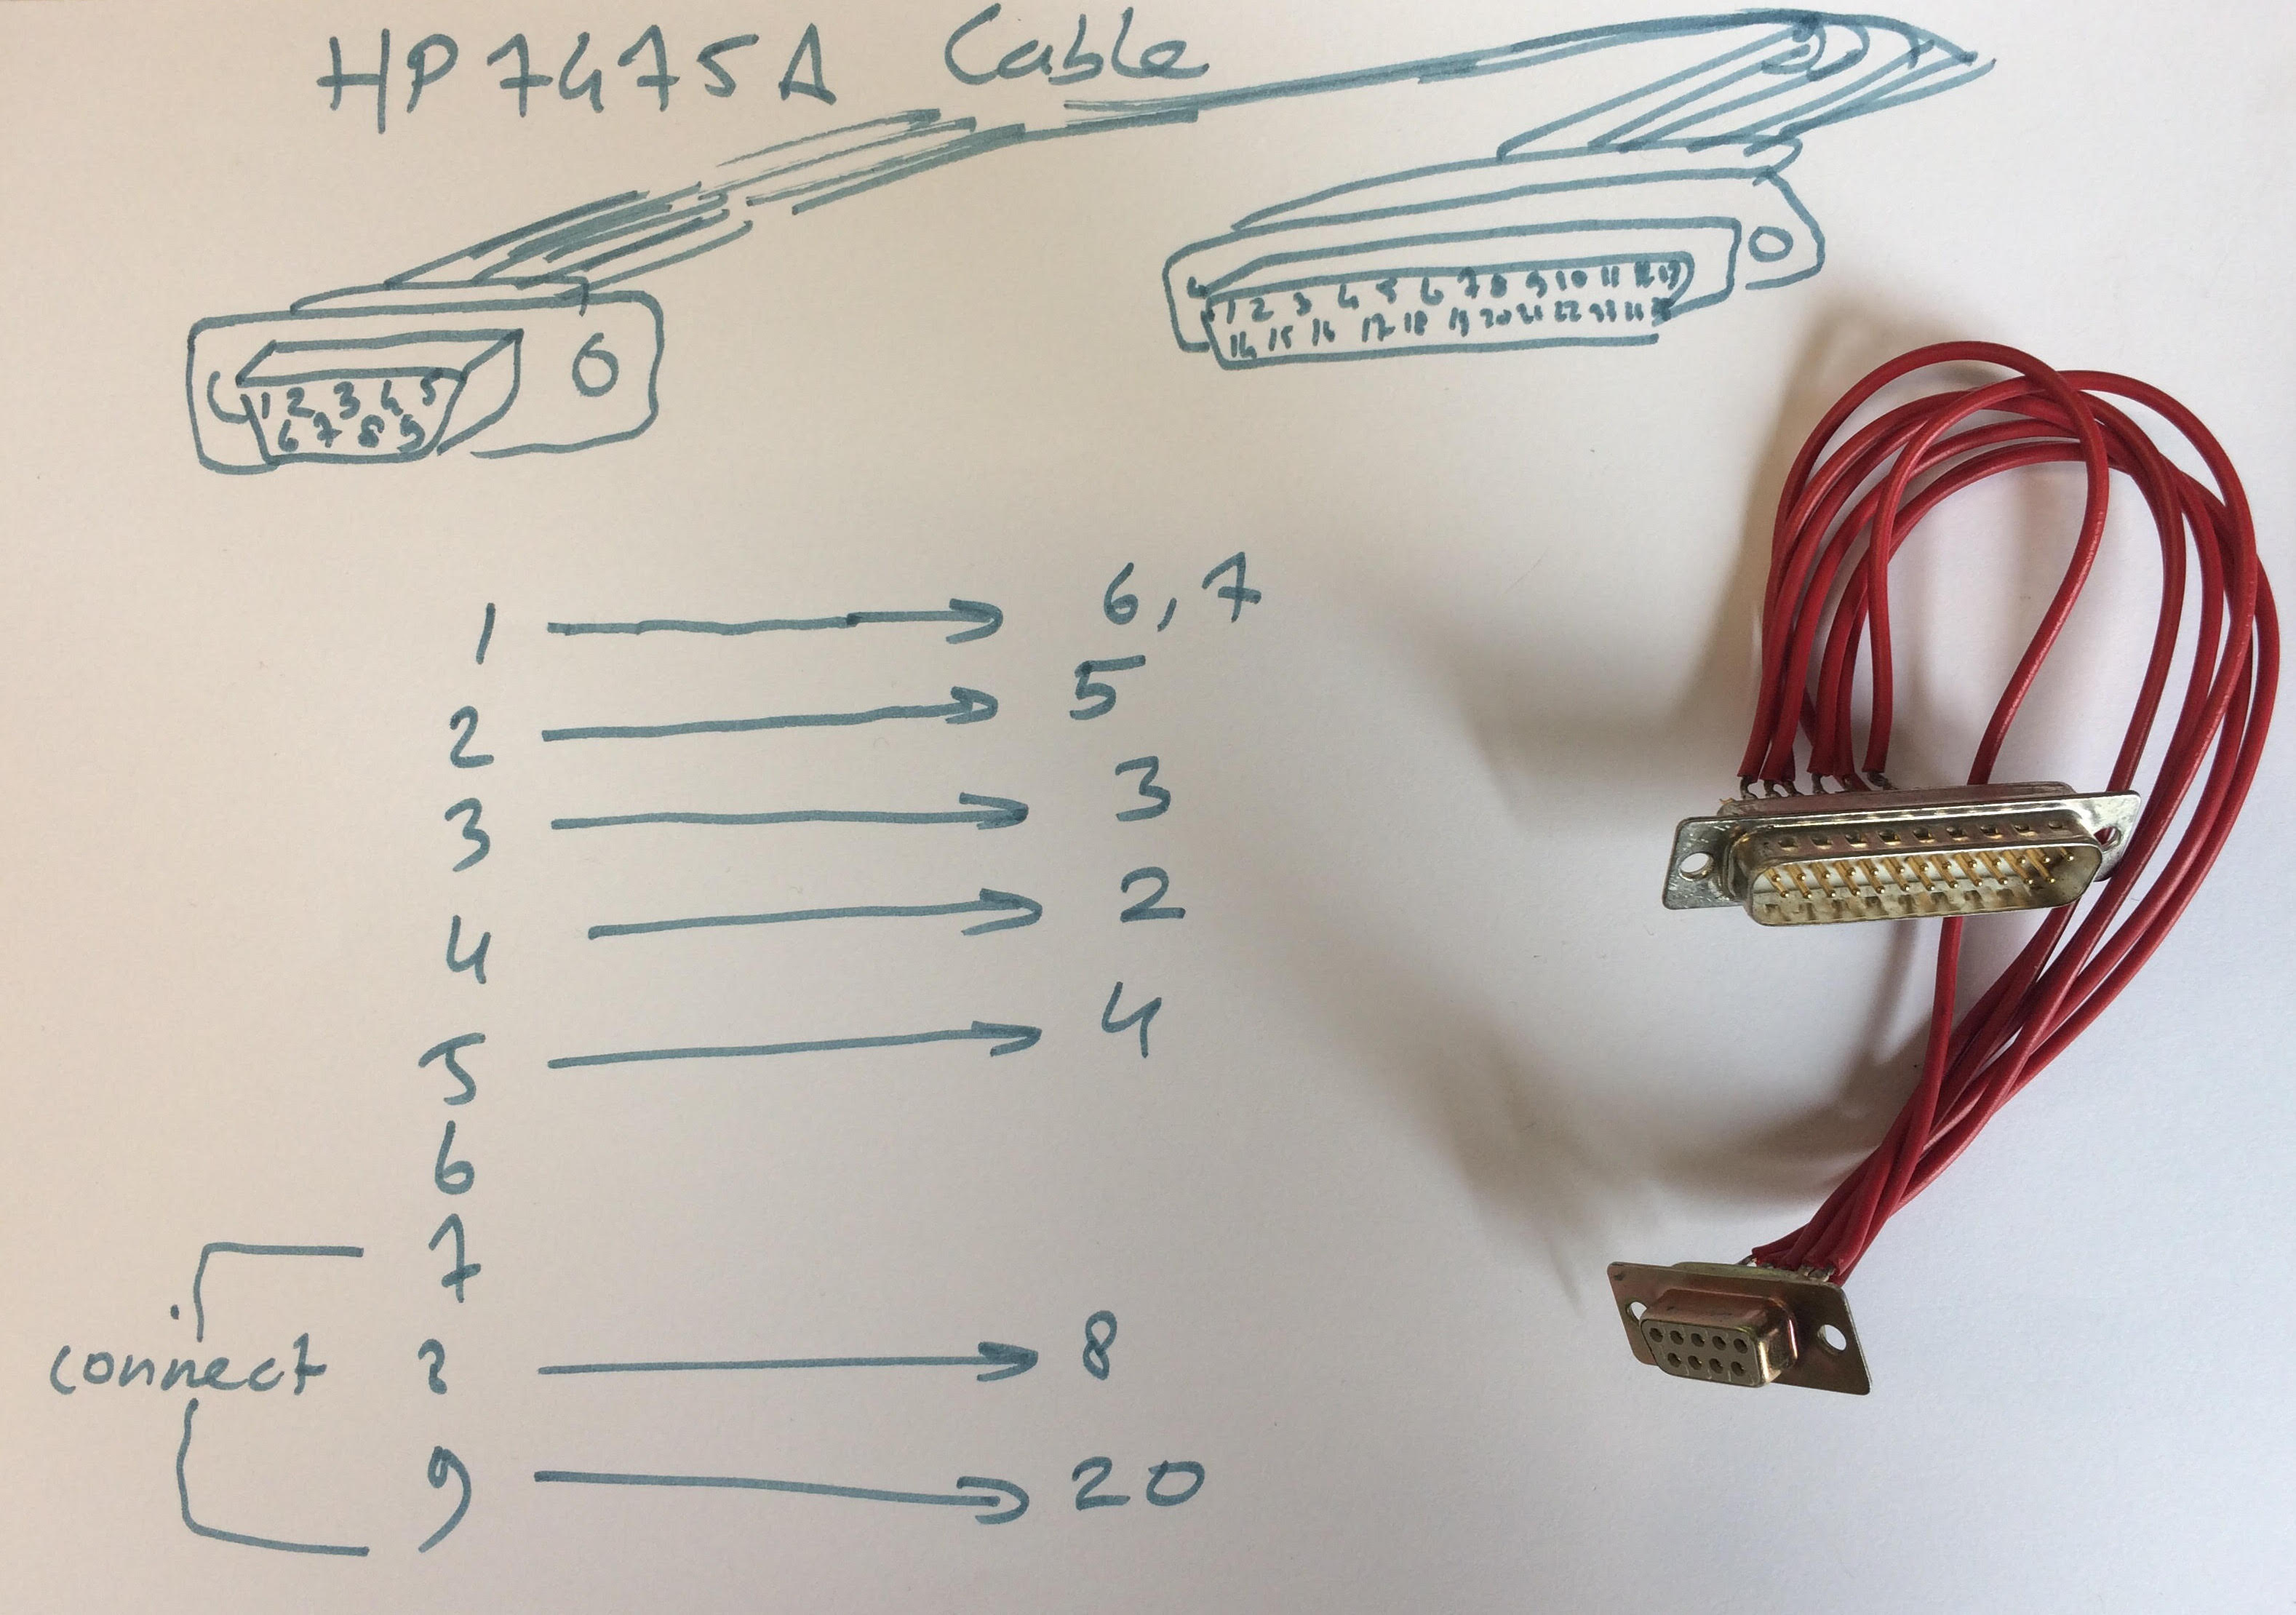 HP7475A Cable
1 2 3 4 5
6 7 8 9
1 2 3 4 5 6 7 8 9 10 11 12 13
14 15 16 17 18 19 20 21 22 23
1 → 6, 7
2 → 5
3 → 3
4 → 2
5 → 4
6
7
connect 8 → 8
9 → 20